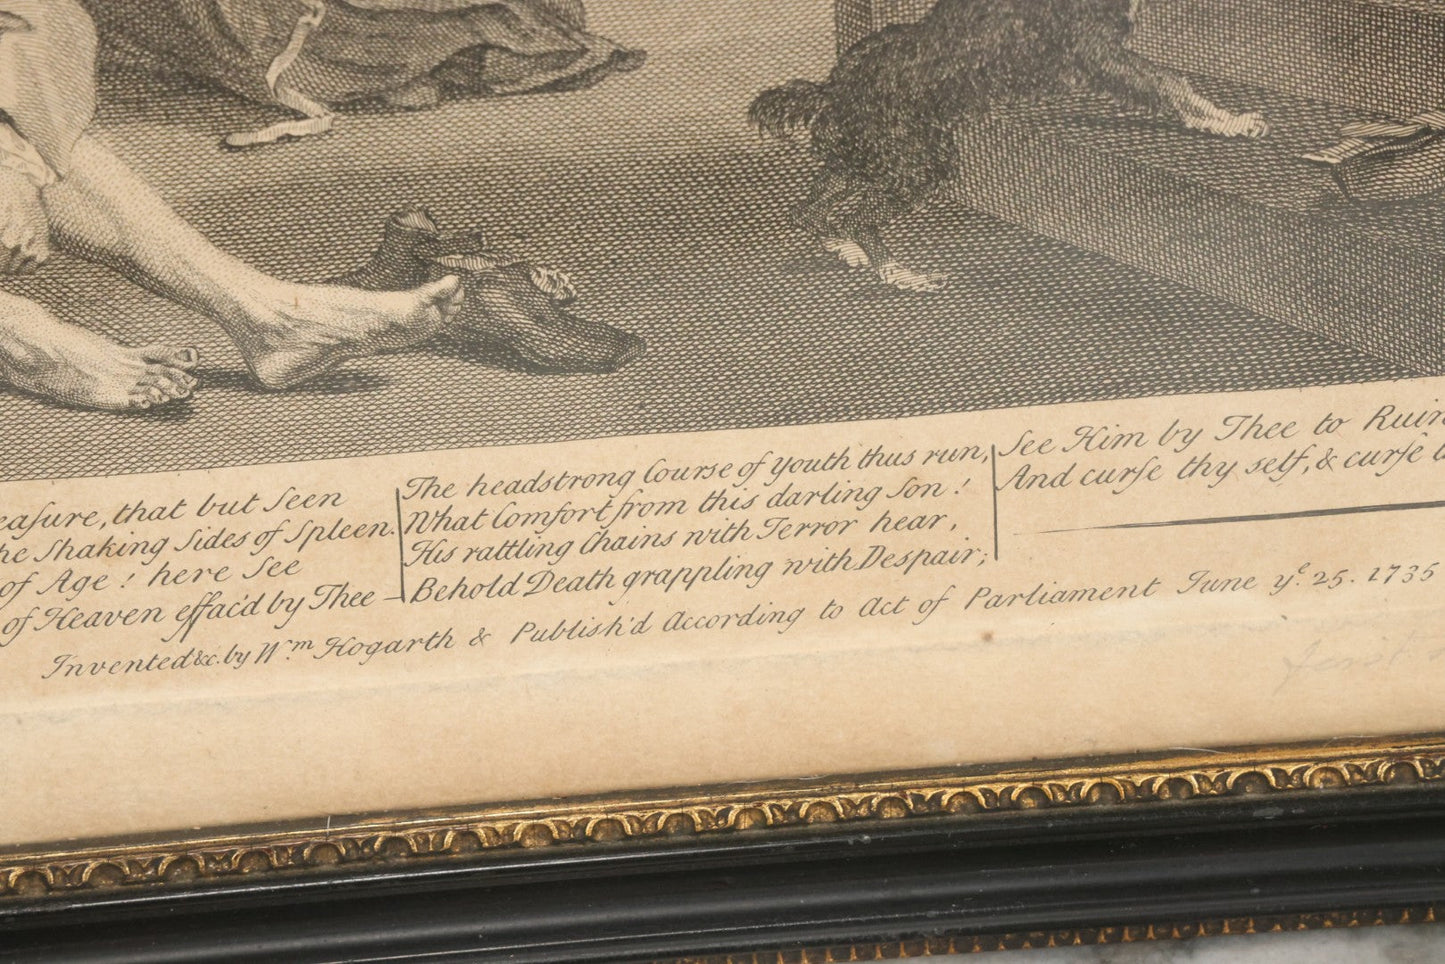 easure, that but seen
he shaking sides of Spleen.
of Age! here see
of Heaven effac'd by Thee —
The headstrong Course of youth thus run,
What Comfort from this darling Son!
His rattling Chains with Terror hear,
Behold Death grappling with Despair;
See Him by Thee to Ruin
And curse thy self, & curse
Invented &c. by Wm. Hogarth & Publish'd According to Act of Parliament June ye. 25. 1735